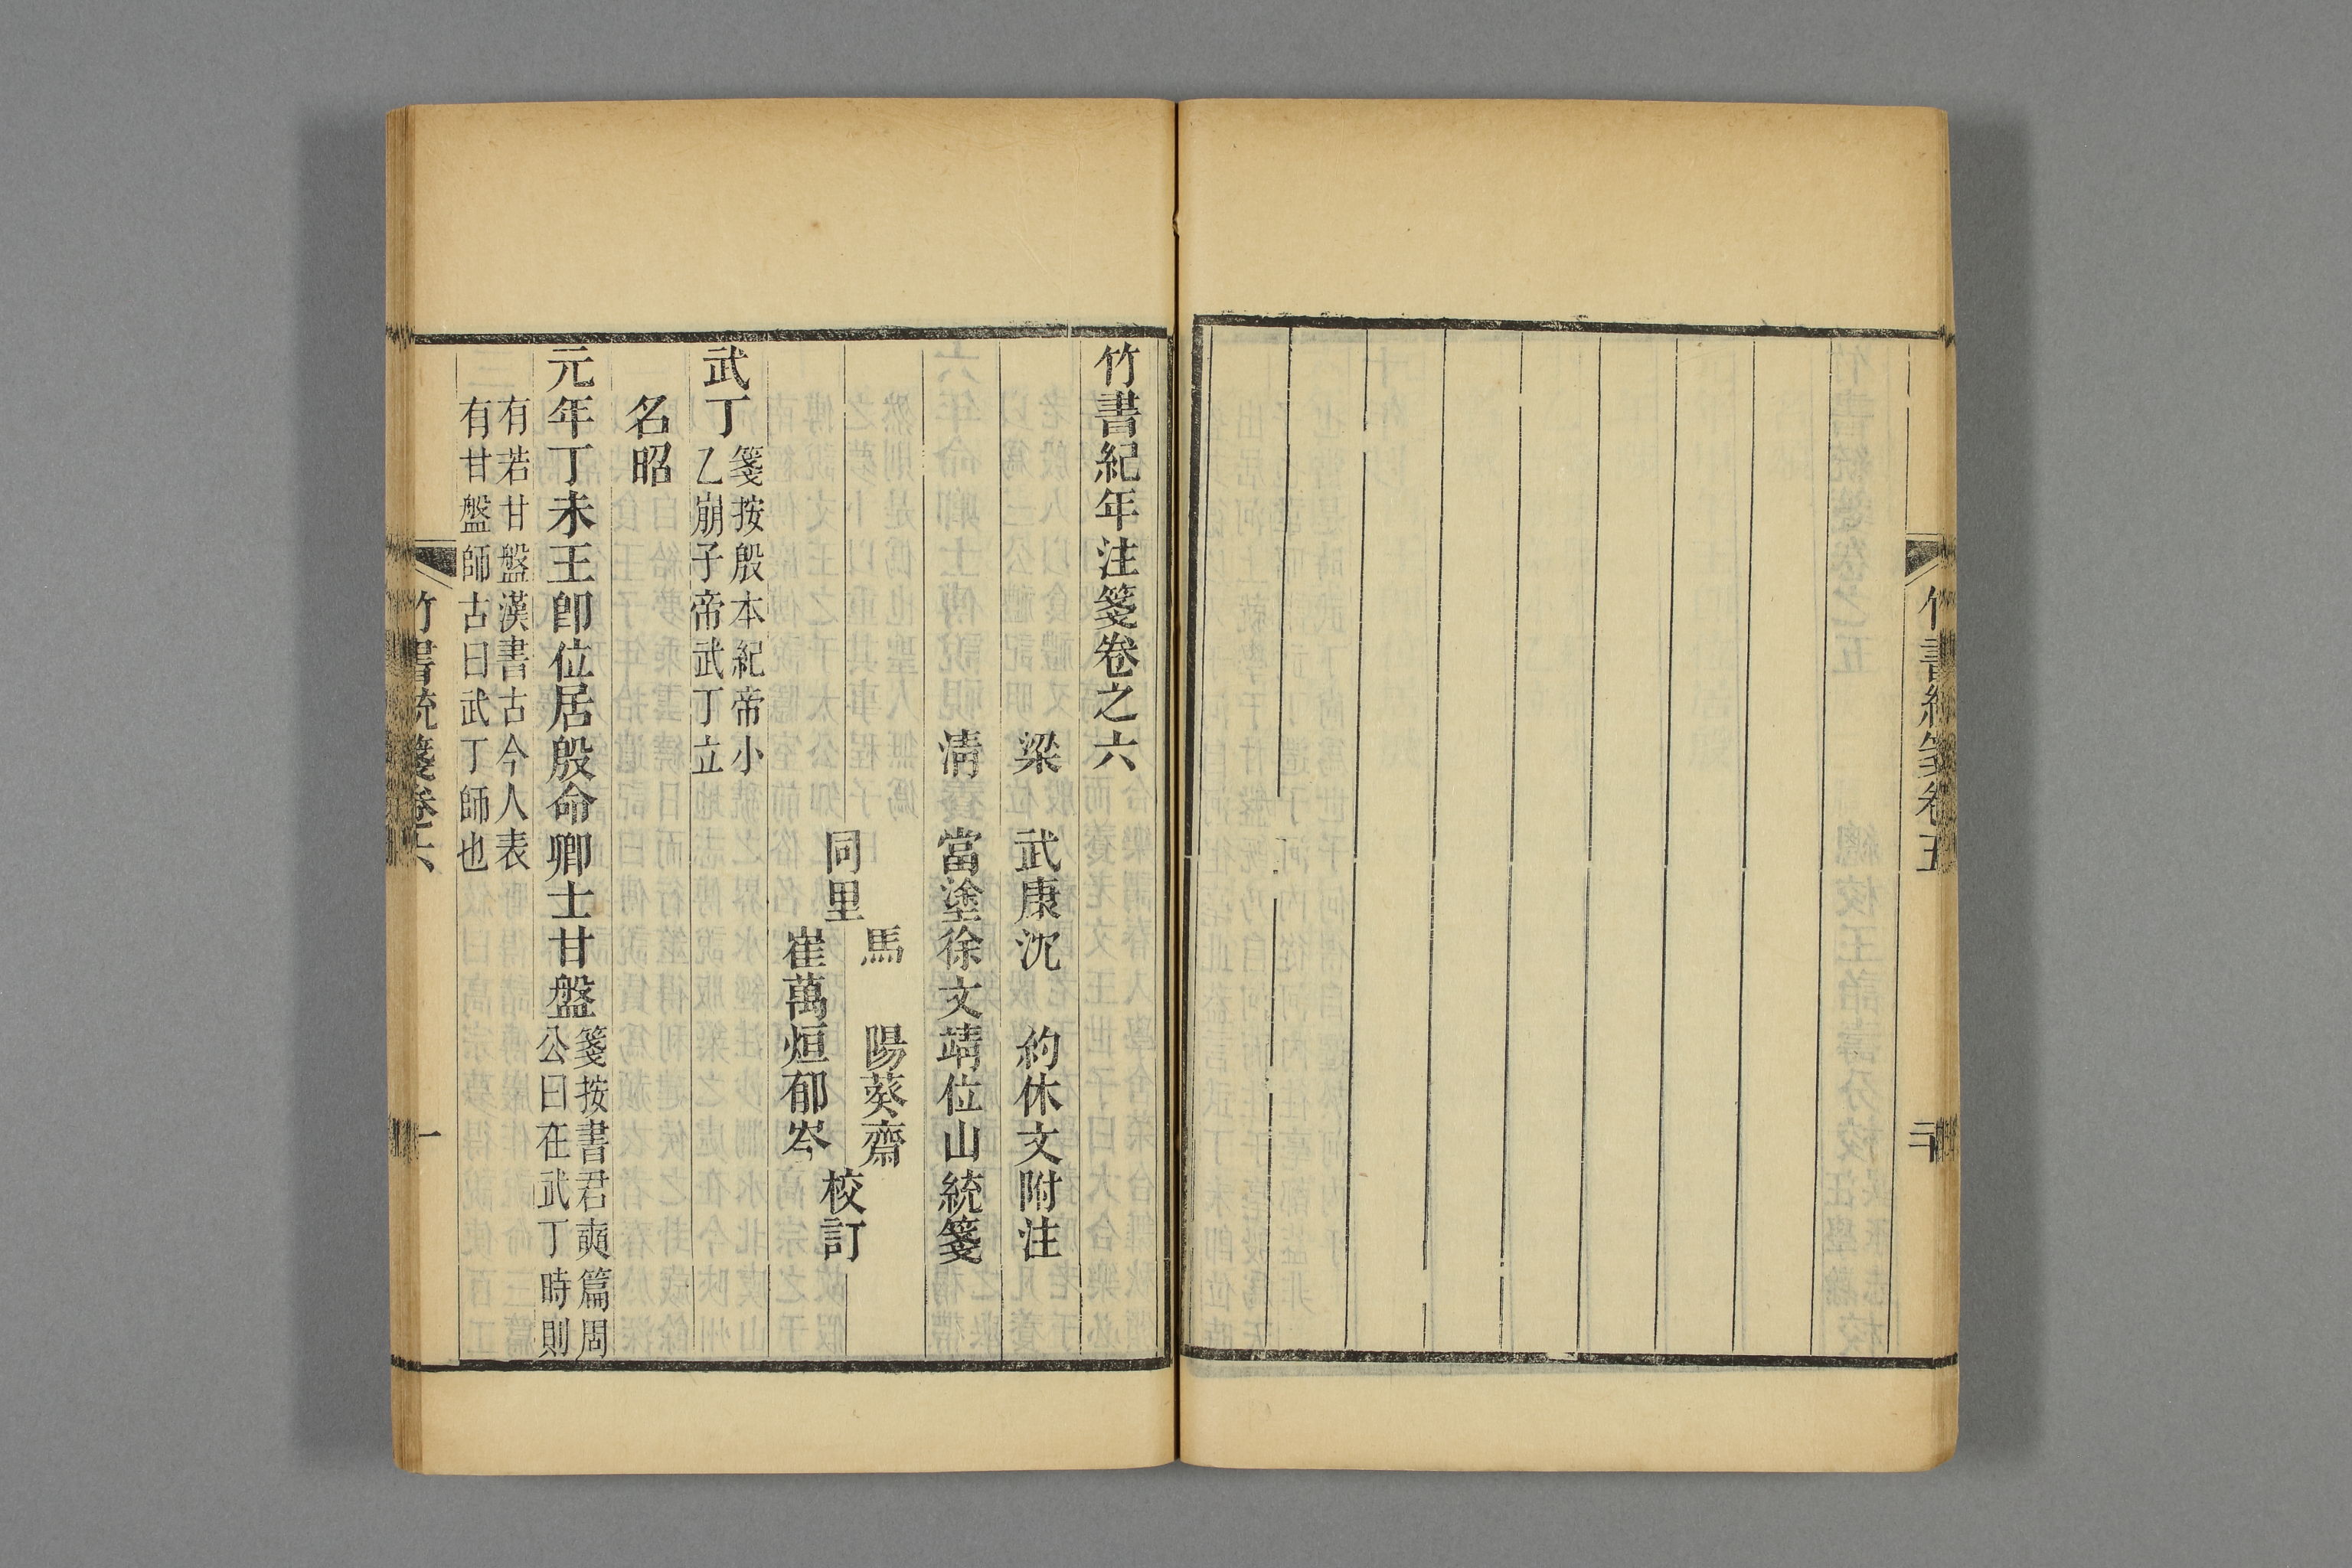 竹書紀年注箋卷之六
梁　武康沈　約休文附注
清　當塗徐文靖位山統箋
同里
馬　陽葵齋
崔萬烜郁岑
校訂
武丁
箋按殷本紀帝小
乙崩子帝武丁立
名昭
元年丁未王卽位居殷命卿士甘盤
箋按書君奭篇周
公曰在武丁時則
有若甘盤漢書古今人表
有甘盤師古曰武丁師也
竹書統箋卷六
一